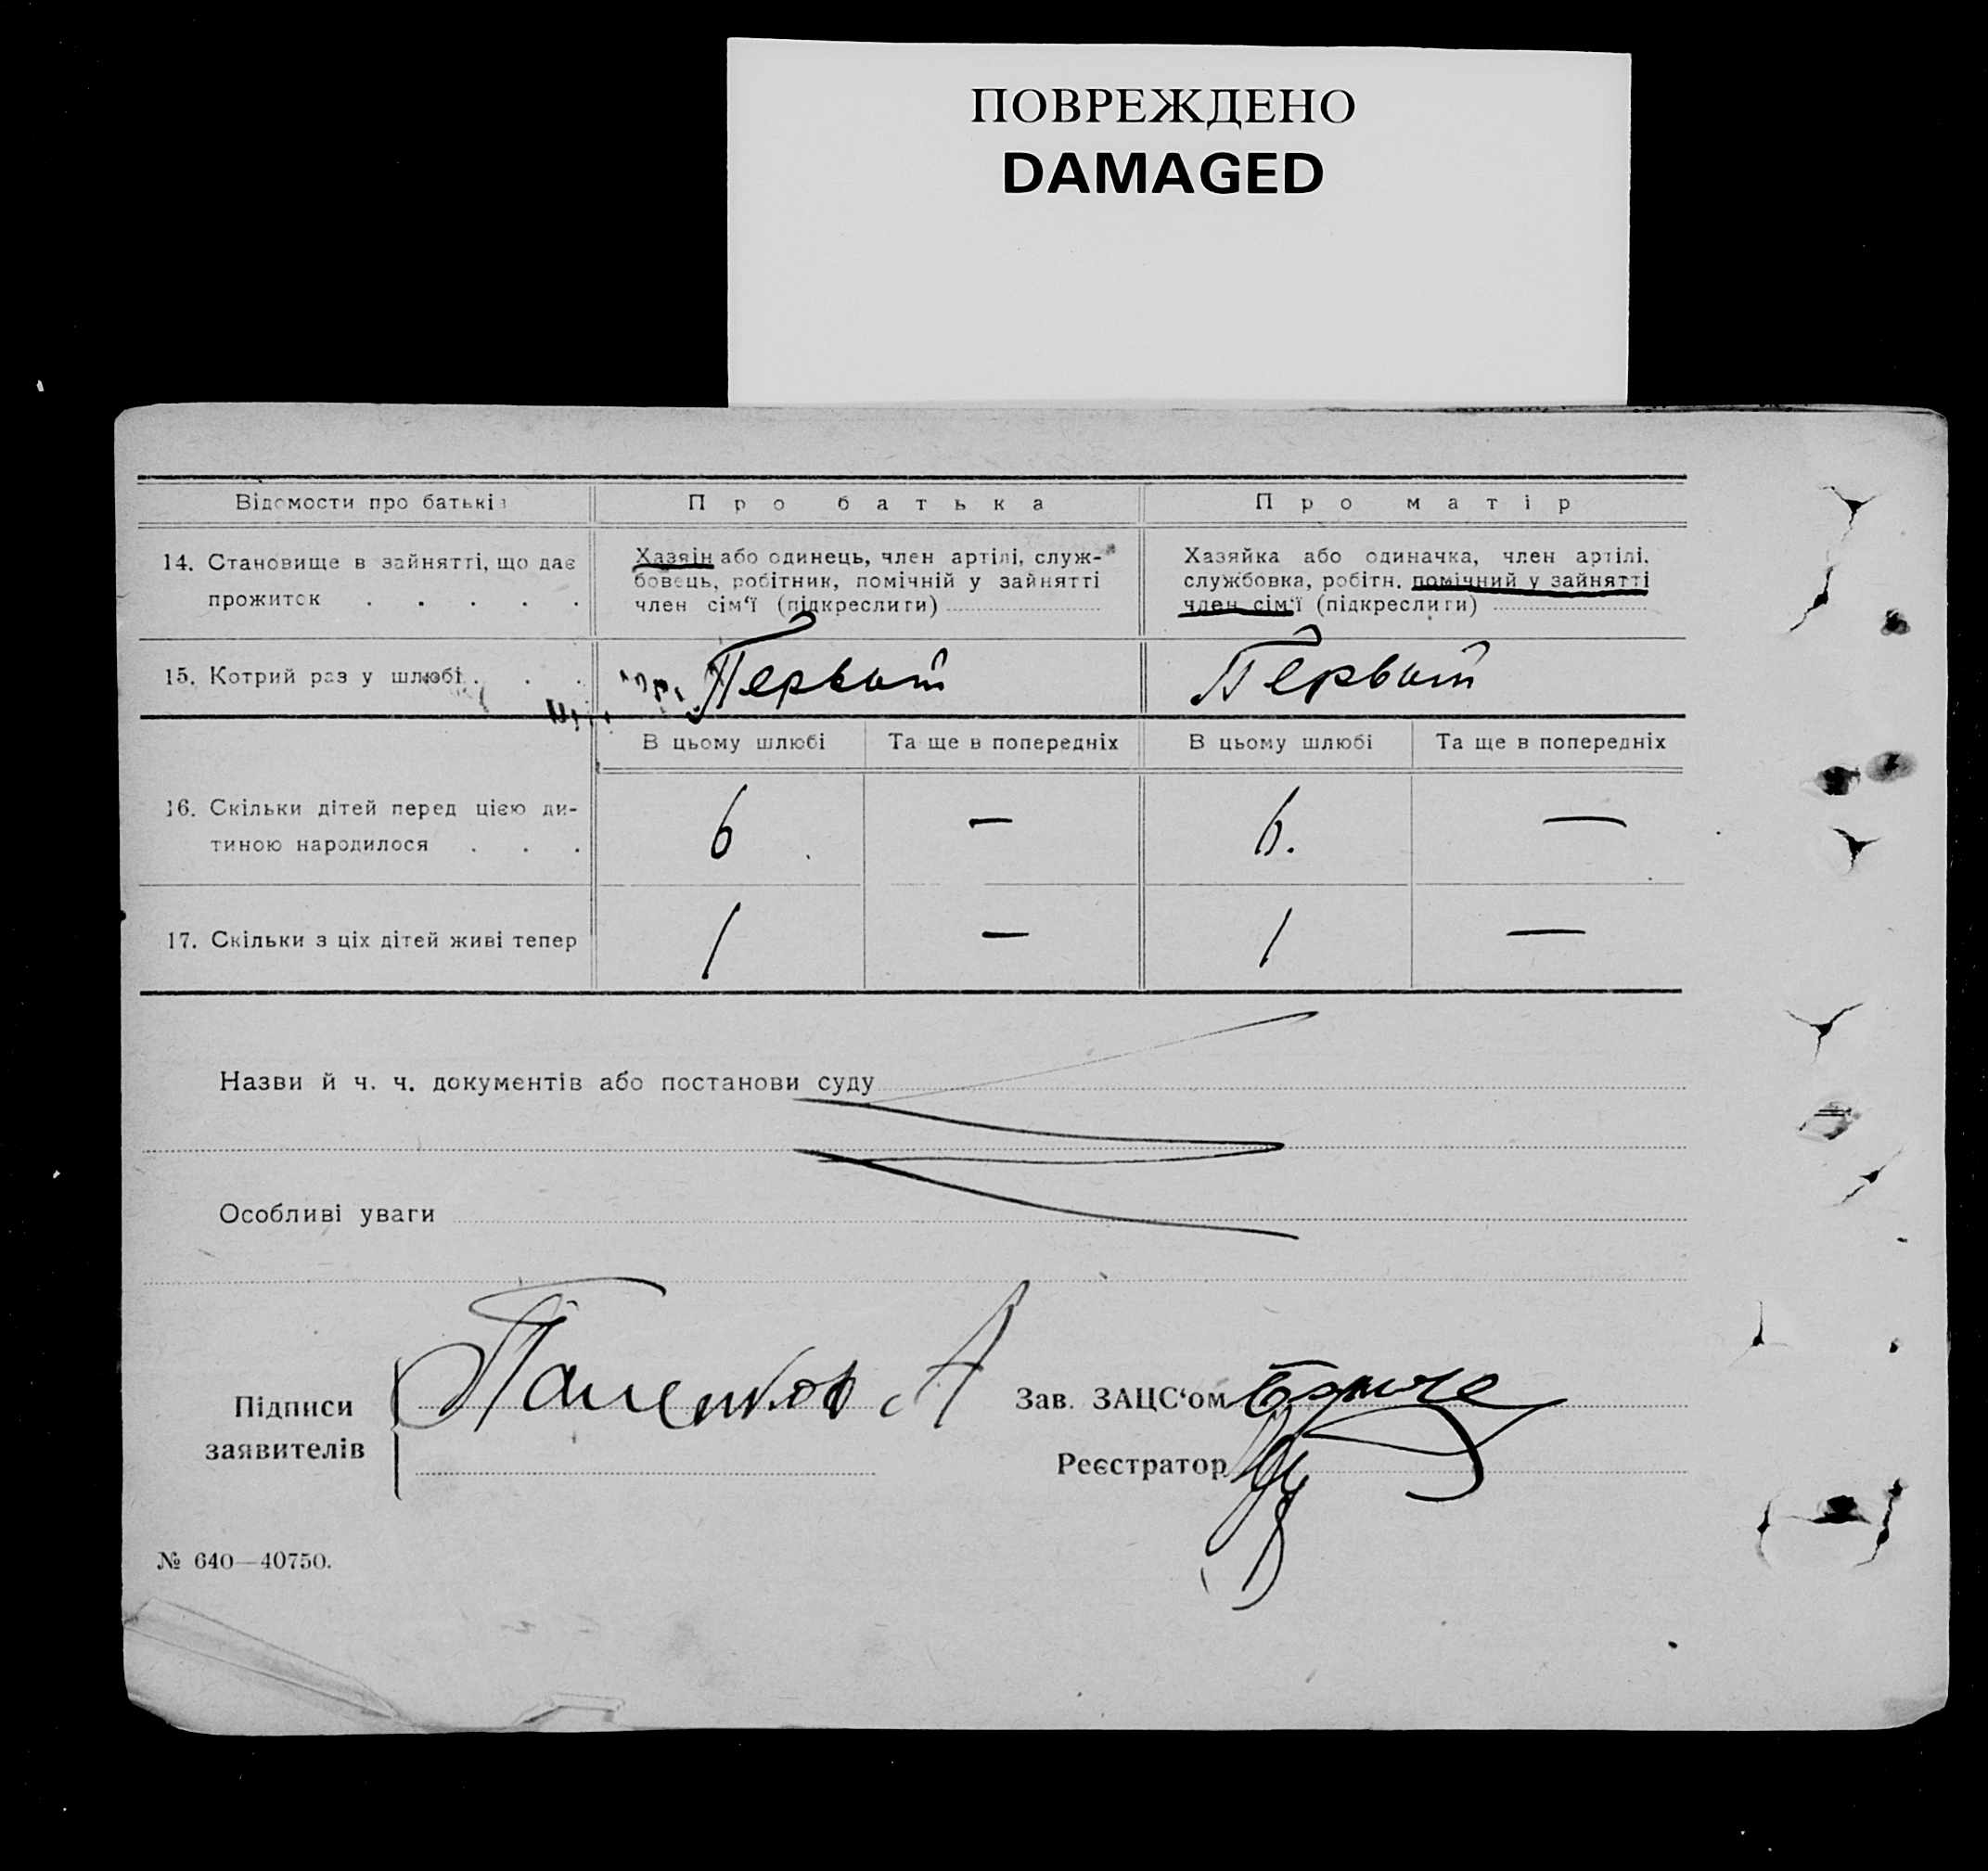 ПОВРЕЖДЕНО
DAMAGED
Відомости про батьків
Про батька
Про матір
14. Становище в зайнятті, що дає
прожиток . . . . .
Хазяїн або одинець, член артілі, служ-
бовець, робітник, помічній у зайнятті
член сім'ї (підкреслити)
Хазяйка або одиначка, член артілі,
службовка, робітн. помічний у зайнятті
член сім'ї (підкреслити)
15. Котрий раз у шлюбі . . .
Первый
Первый
В цьому шлюбі
Та ще в попередніх
В цьому шлюбі
Та ще в попередніх
16. Скільки дітей перед цією ди-
тиною народилося . . .
6
—
6.
—
17. Скільки з ціх дітей живі тепер
1
—
1
—
Назви й ч. ч. документів або постанови суду
Особливі уваги
Підписи
заявителів
А
Зав. ЗАЦС'ом
Реєстратор
№ 640—40750.